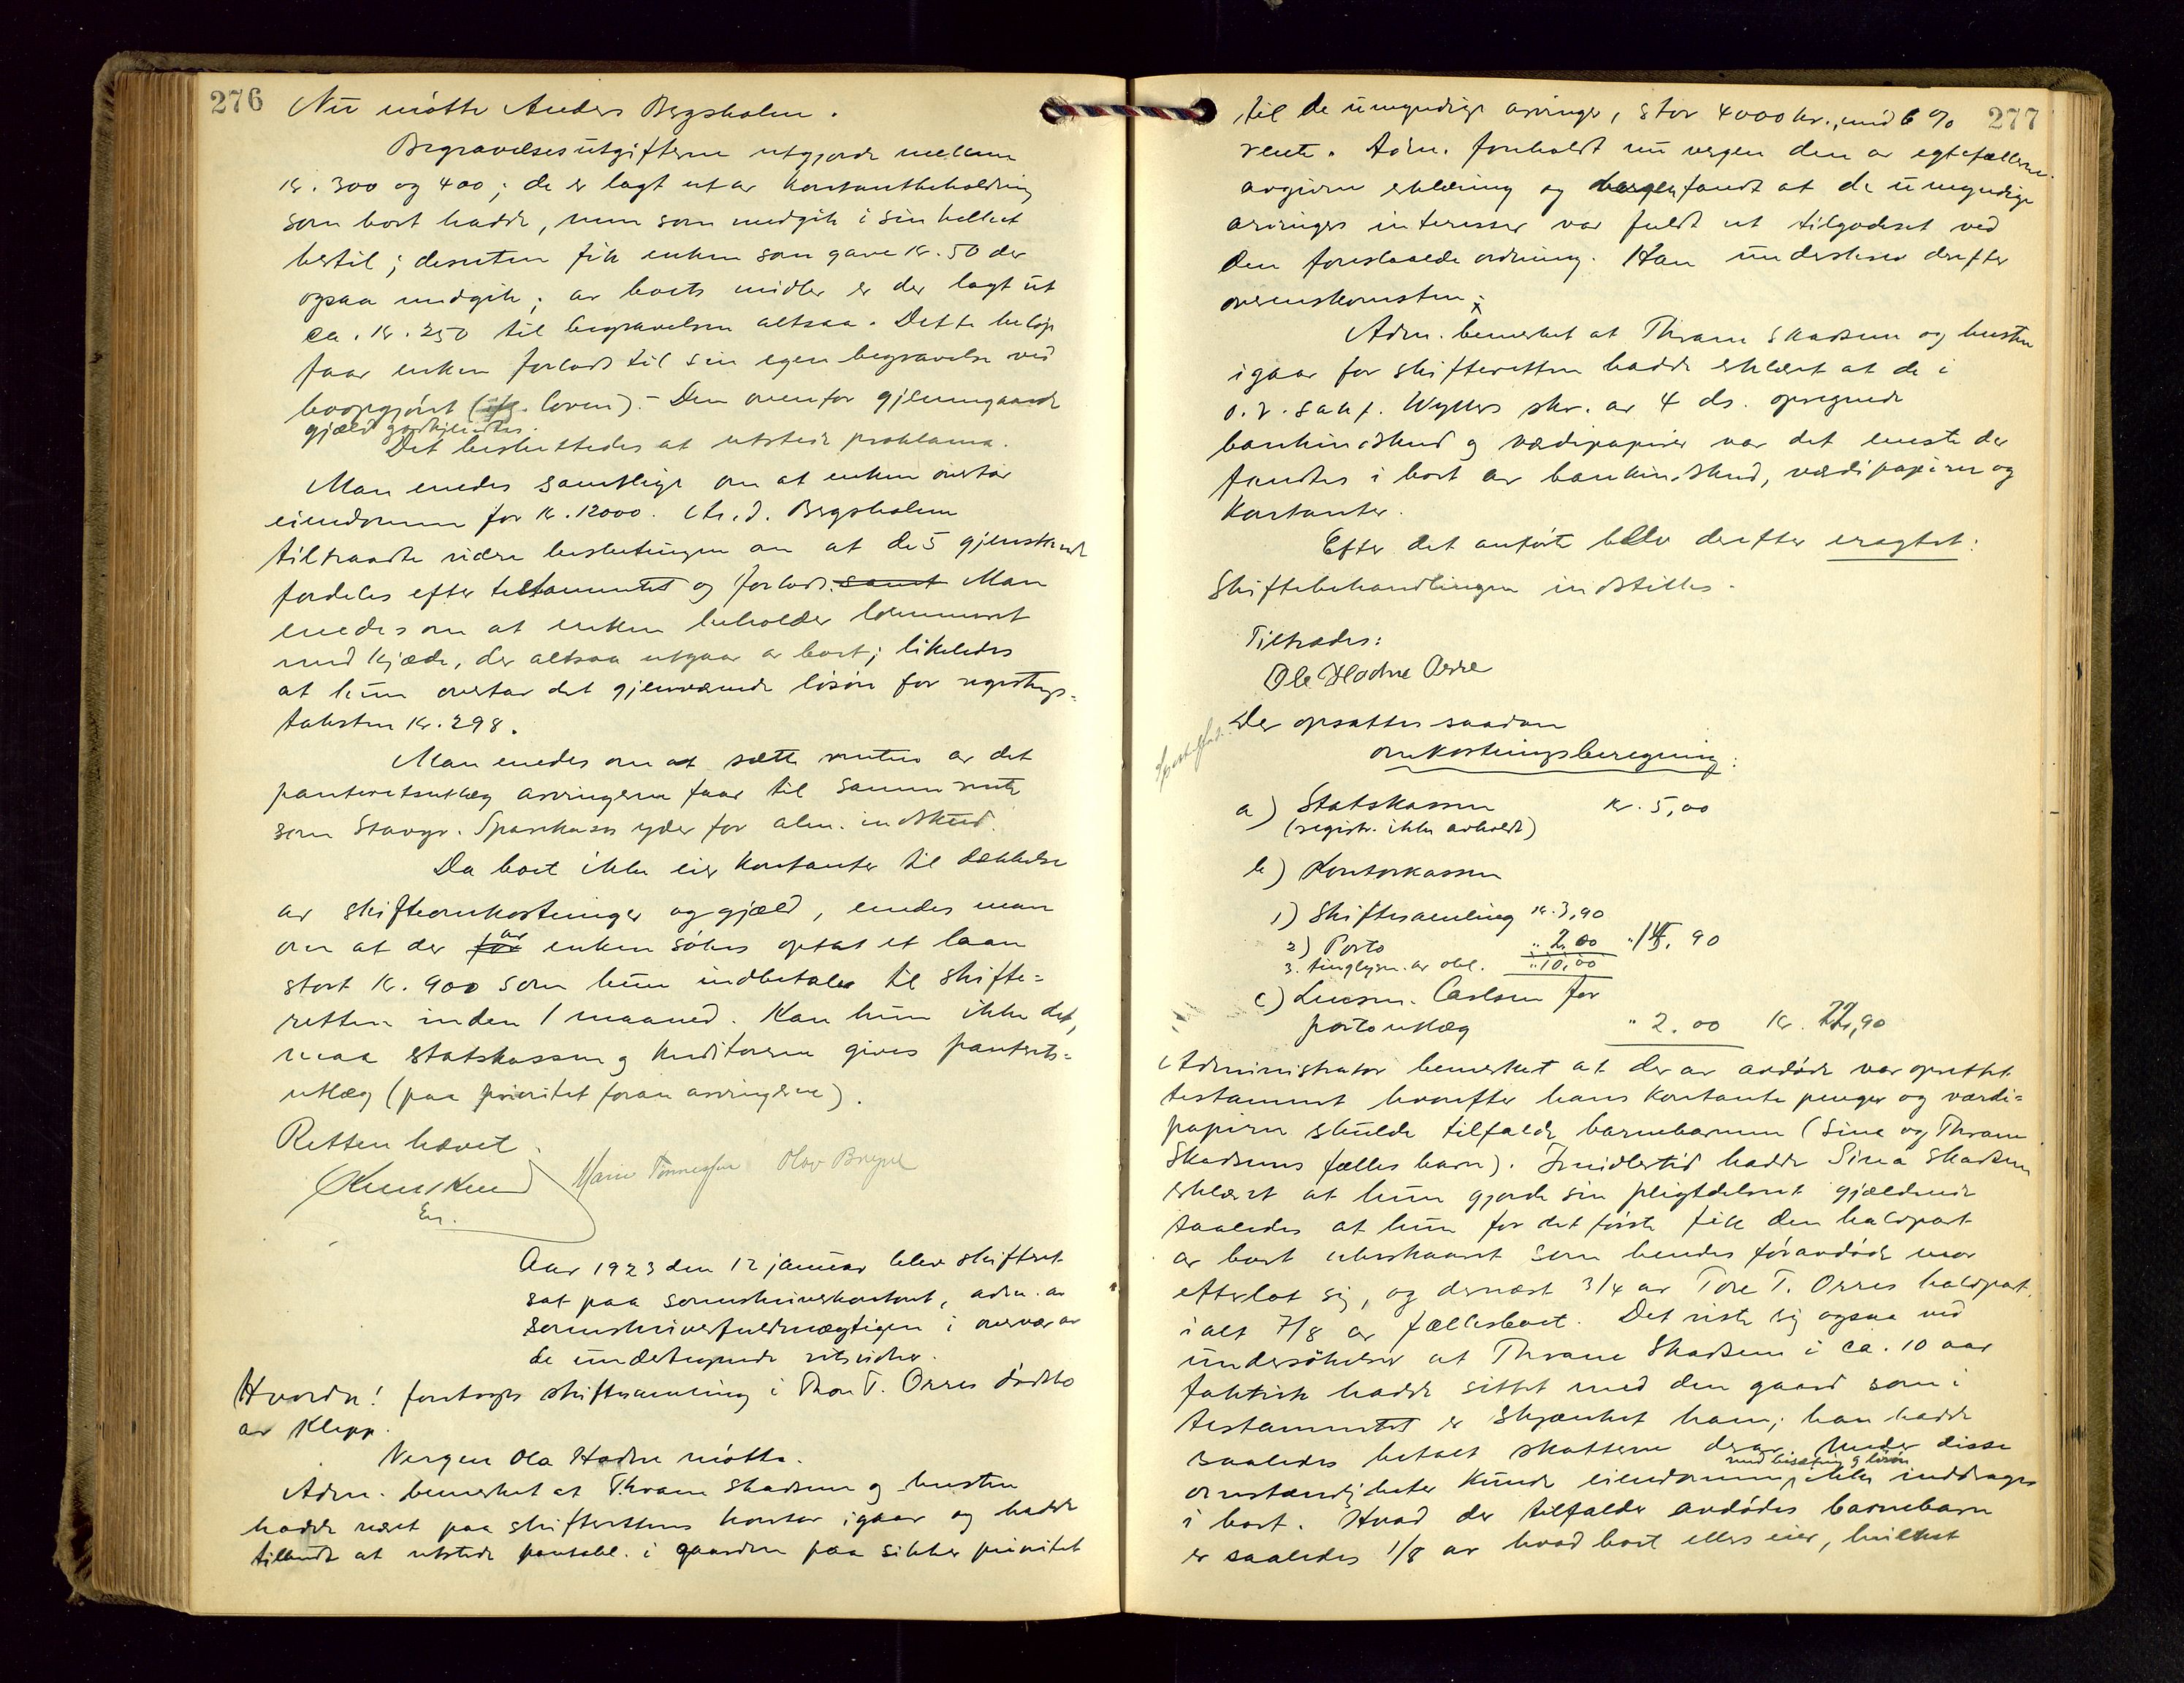 276
Nu møtte Anders Bergsholm.
Begravelsesutgifterne utgjorde mellem
kr. 300 og 400; de er lagt ut av kontantbeholdning
som boet hadde, men som medgik i sin helhet
hertil; desuten fik enken som gave kr. 50 der
ogsaa medgik; av boets midler er der lagt ut
ca. kr. 250 til begravelsen altsaa. Dette beløp
faar enken forlods til sin egen begravelse ved
boopgjøret (efg. loven). - Den ovenfor gjennemgaaede
gjæld godkjendtes.
Det besluttedes at utstede proklama.
Man enedes samtlige om at enken overtar
eiendommen for kr. 12000. Bergsholm
tiltraadte videre beslutningen om at de 5 gjenstande
fordeles efter testamentet og forlods. samt Man
enedes om at enken beholder lommeuret
med kjæde, der altsaa utgaar av boet; likeledes
at hun overtar det gjenværende løsøre for registrerings-
taksten kr. 298.
Man enedes om at sætte renten av det
panteretsutlæg arvingerne faar til samme rente
som Stavgr. Sparekasse yder for alm. indskud.
Da boet ikke eier kontanter til dækkelse
av skifteomkostninger og gjæld, enedes man
om at der for av enken søkes optat et laan
stort kr. 900 som hun indbetaler til skifte-
retten inden 1 maaned. Kan hun ikke det,
maa statskassen og kreditorerne gives panterets-
utlæg (paa prioritet foran arvingerne).
Retten hævet.
Marie Tønnessen Olav Bryne
En.
Aar 1923 den 12 januar blev skifteret
sat paa sorenskriverkontoret, adm. av
sorenskriverfuldmægtigen i overvær av
de undertegnede retsvidner.
Hvorda! foretoges skiftesamling i Thore T. Orres dødsbo
av Klepp.
Vergen Ola Hodne møtte.
Adm. bemerket at Thrane Skadsem og hustru
hadde været paa skifterettens kontor igaar og hadde
tilbudt at utstede pantobl. i gaarden paa sikker prioritet
277
til de umyndige arvinger, stor 4000 kr., med 6 %
rente. Adm. foreholdt nu vergen den av egtefællerne
avgivne erklæring og vergen fandt at de umyndige
arvingers interesser var fuldt ut tilgodeset ved
den foreslaaede ordning. Han underskrev derefter
overenskomsten.
Adm. bemerket at Thrane Skadsem og hustru
igaar for skifteretten hadde erklært at de i
o.r.sakf. Wyllers skr. av 4 ds. opregnede
bankindskud og værdipapirer var det eneste der
fandtes i boet av bankindskud, værdipapirer og
kontanter.
Efter det anførte blev derefter eragtet:
Skiftebehandlingen indstilles.
Tiltrædes:
Ole Hodne Orre
Der opsattes saadan
omkostningsberegning:
a) Statskassen kr. 5,00
(registr. ikke avholdt)
b) Kontorkassen
1) Skiftesamling kr. 3,90
2) Porto " 2.00 " 15.90
3. tinglysn. av obl. " 10,00
c) Lensm. Carlsen for
portoutlæg " 2.00 kr. 22,90
Administrator bemerket at der av avdøde var oprettet
testament hvorefter hans kontante penger og værdi-
papirer skulde tilfalde barnebarnene (Sina og Thrane
Skadsems fælles barn). Imidlertid hadde Sina Skadsem
erklæret at hun gjorde sin pligtdelsret gjældende
saaledes at hun for det første fik den halvpart
av boet ubeskaaret som hendes føravdøde mor
efterlot sig, og dernæst 3/4 av Tore T. Orres halvpart,
ialt 7/8 av fællesboet. Det viste sig ogsaa ved
undersøkelser at Thrane Skadsem i ca. 10 aar
faktisk hadde sittet med den gaard som i
testamentet er skjænket ham; han hadde
saaledes betalt skatterne derav. Under disse
omstændigheter kunde eiendommen med besætning og løsøre ikke inddrages
i boet. Hvad der tilfalder avdødes barnebarn
er saaledes 1/8 av hvad boet ellers eier, hvilket